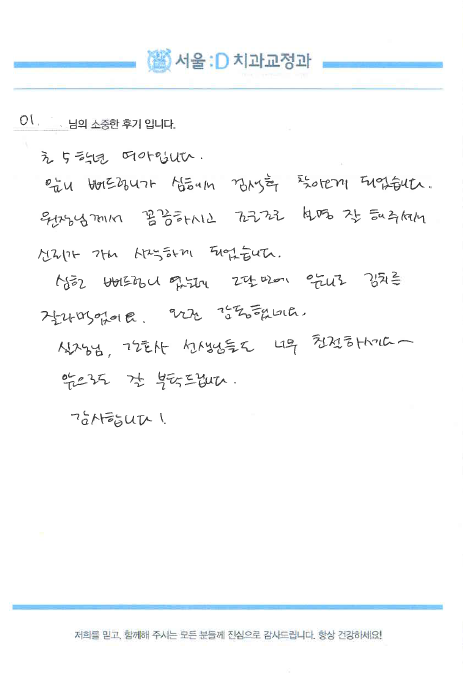 서울:D 치과교정과
이. 님의 소중한 후기 입니다.
초 5학년 여아입니다.
앞니 뻐드렁니가 심해서 검색후 찾아오게 되었습니다.
원장님께서 꼼꼼하시고 조근조근 설명 잘 해주셔서
신뢰가 가서 시작하게 되었습니다.
심한 뻐드렁니 였는데 2달만에 앞니로 김치를
잘라먹었어요. 완전 감동했네요.
실장님, 간호사 선생님들도 너무 친절하세요~
앞으로도 잘 부탁드립니다.
감사합니다!
저희를 믿고, 함께해 주시는 모든 분들께 진심으로 감사드립니다. 항상 건강하세요!